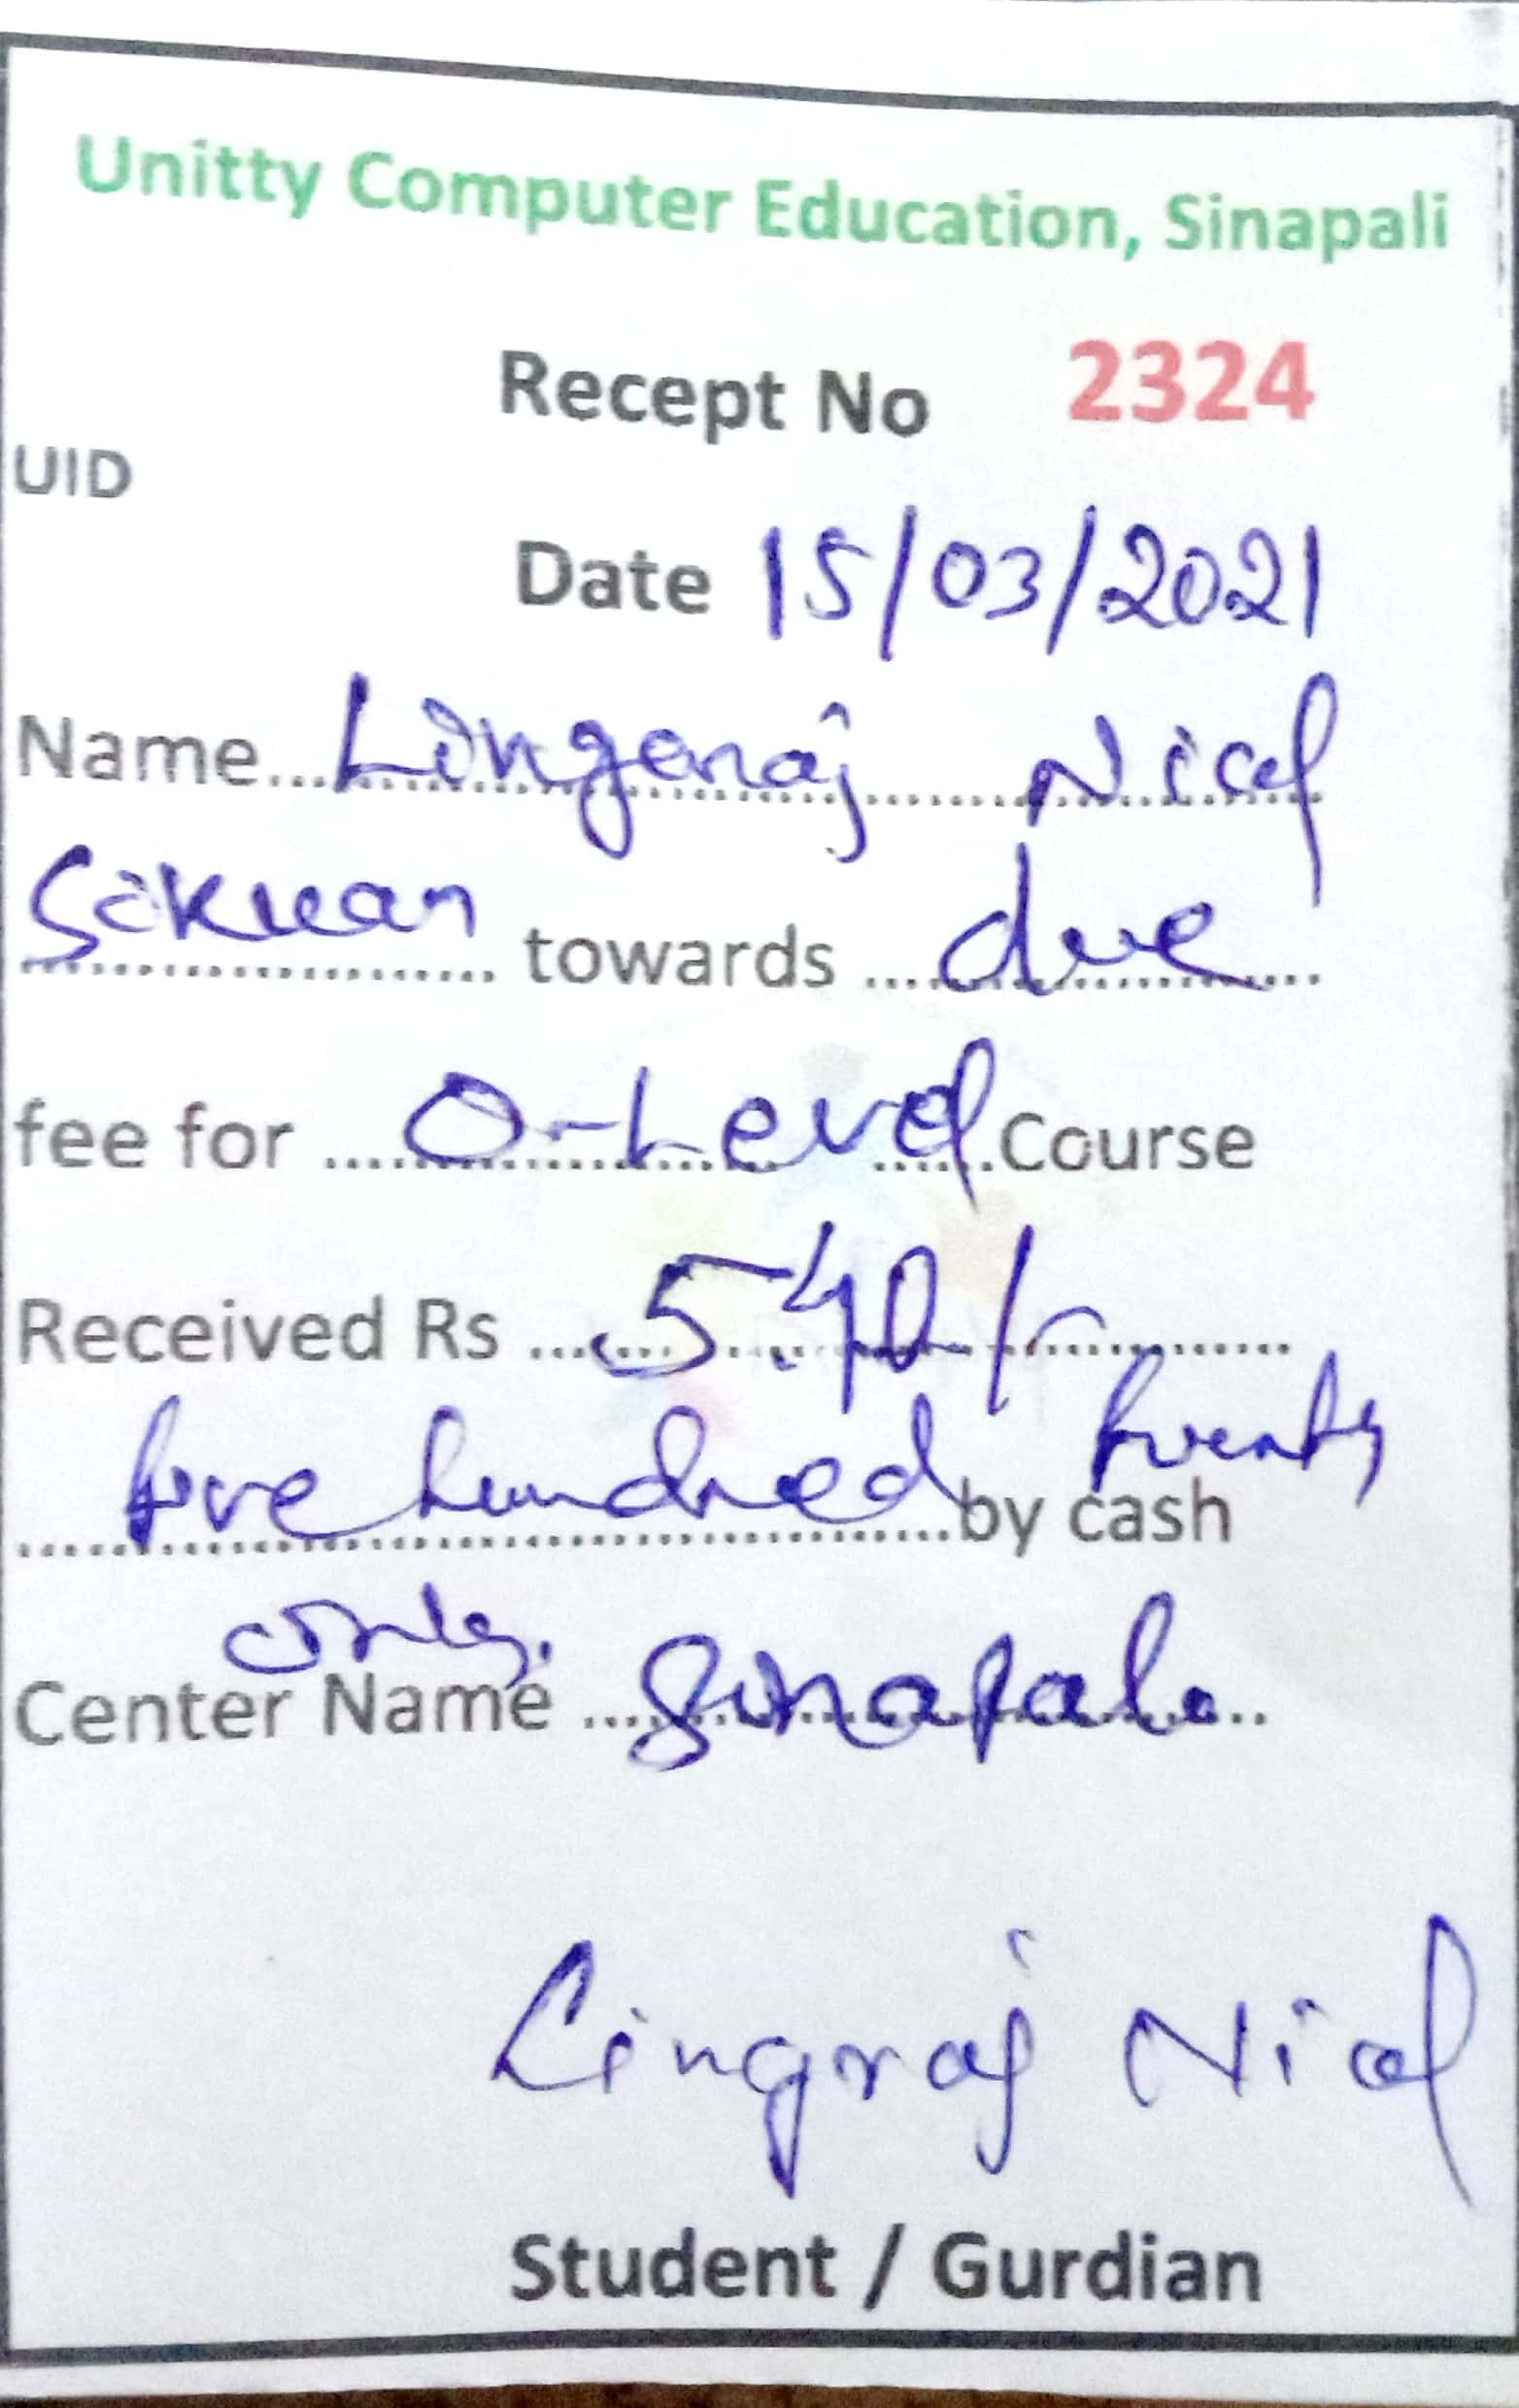 Unitty Computer Education, Sinapali
Recept No 2324
UID
Date 15/03/2021
Name Lingaraj Nial
towards due
fee for O-Level Course
Received Rs 540/-
five hundred by cash
only.
Center Name Sinapali
Lingraj Nial
Student / Gurdian